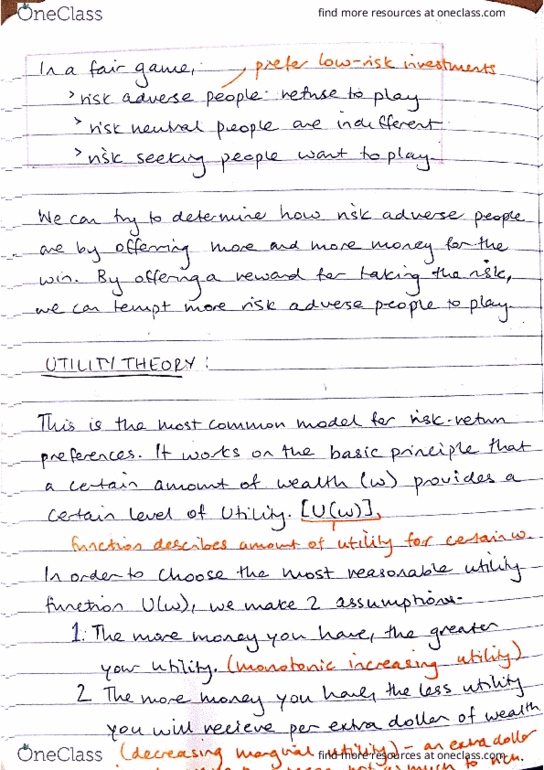 OneClass
find more resources at oneclass.com
In a fair game,: prefer low-risk investments
> risk adverse people: refuse to play
> risk neutral people are indifferent
> risk seeking people want to play
We can try to determine how risk adverse people
are by offerring more and more money for the
win. By offering a reward for taking the risk,
we can tempt more risk adverse people to play
UTILITY THEORY:
This is the most common model for risk-return
preferences. It works on the basic principle that
a certain amount of wealth (w) provides a
certain level of Utility. [U(w)],
function describes amount of utility for certain w.
In order to choose the most reasonable utility
function U(w), we make 2 assumptions-
1. The more money you have, the greater
your utility. (monotonic increasing utility)
2. The more money you have, the less utility
you will recieve per extra dollar of wealth
(decreasing marginal utility) - an extra dollar
OneClass
find more resources at oneclass.com
much to